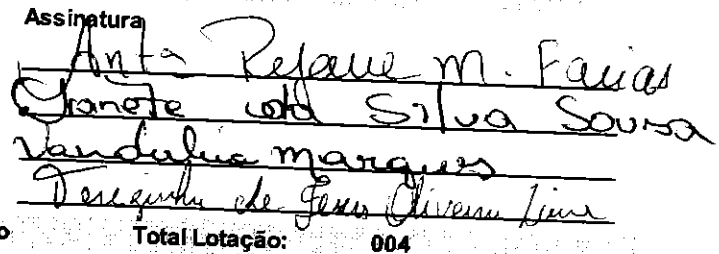 Assinatura
Anta Rejane M. Farias
Gianete cotd Silva Sousa
Vandalua Marques
Terezinha de Jesus Oliveira Lima
o Total Lotação: 004